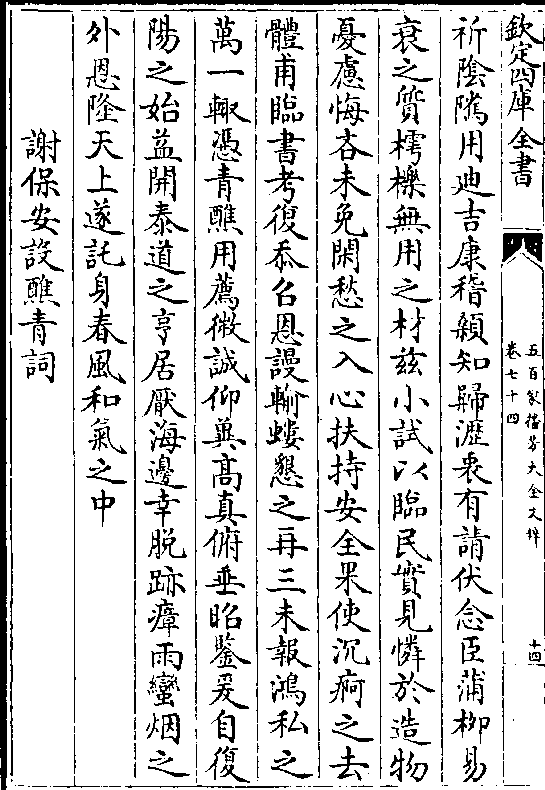 欽定四庫全書
五百家播芳大全文粹
卷七十四
十四
祈陰隲用廸吉康稽顙知歸瀝衷有請伏念臣蒲柳易
衰之質樗櫟無用之材兹小試以臨民實見憐於造物
憂慮悔吝未免閑愁之入心扶持安全果使沉痾之去
體甫臨書考復忝召恩謾輸螻懇之再三未報鴻私之
萬一輙憑青醮用薦微誠仰兾髙真俯垂昭鑒爰自復
陽之始益開泰道之亨居厭海邊幸脱跡瘴雨蠻烟之
外恩隆天上遂託身春風和氣之中
謝保安設醮青詞